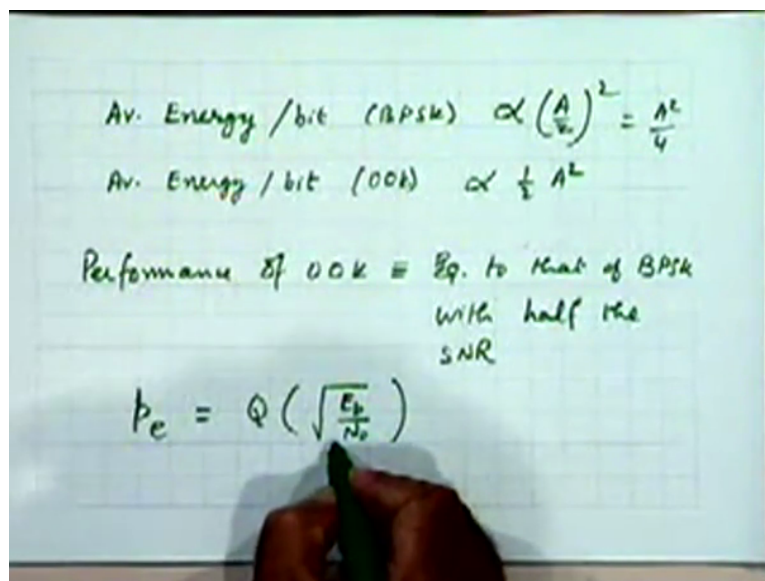 Av. Energy /bit (BPSK) ∝ (A/2)² = A²/4
Av. Energy / bit (OOK) ∝ ½ A²
Performance of OOK ≡ Eq. to that of BPSK
with half the
SNR
pₑ = Q(√(E_b/N₀))